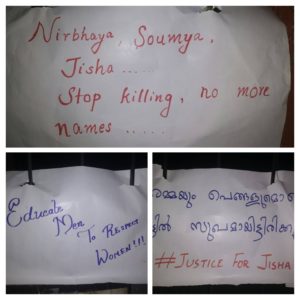 Nirbhaya, Soumya,
Jisha .....
Stop killing, no more
names .....
Educate
Men
To Respect
Women!!!
രമ്മയും പെങ്ങളുമൊ
ട്ടിൽ സുഖമായിട്ടിരിക്ക
#JUSTICE FOR JISHA